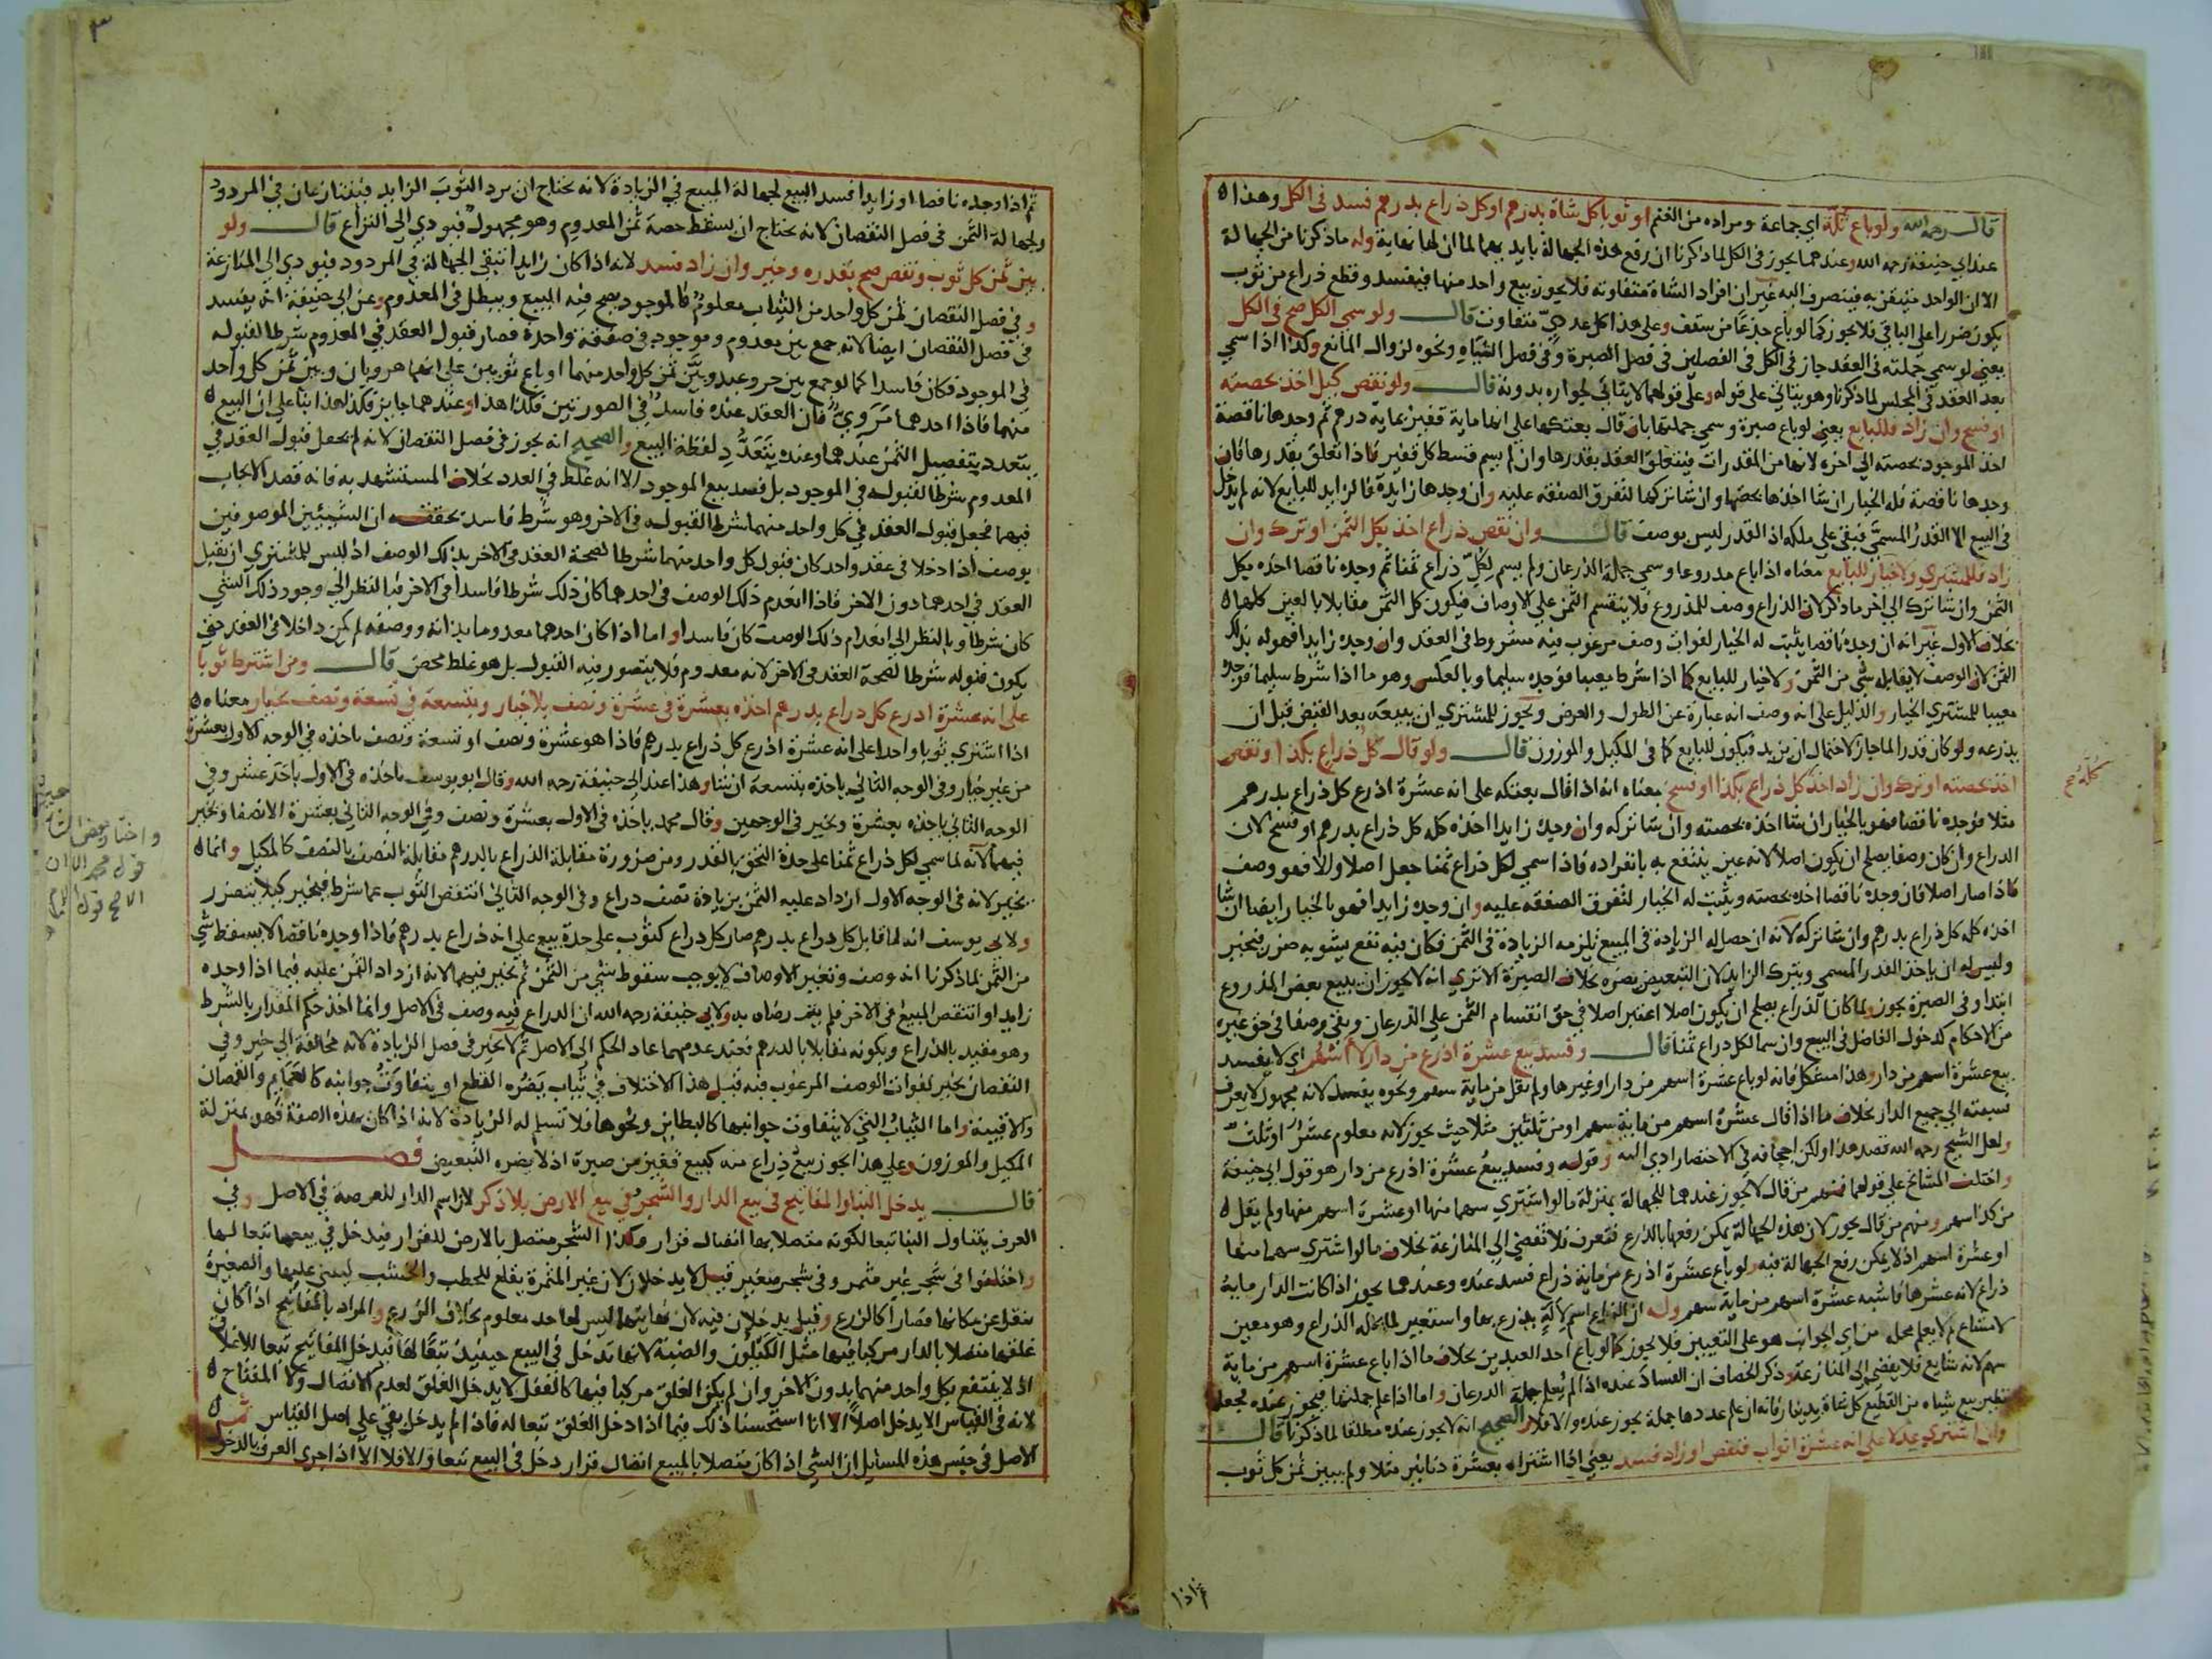 قال رحمه الله ولو باع ثلة اي جماعة ومراده من الغنم او ثوبا كل شاة بدرهم او كل ذراع بدرهم فسد في الكل وهذا
عند ابي حنيفة رحمه الله وعندهما يجوز في الكل لما ذكرنا ان رفع هذه الجهالة بايديهما لما ان لها نهاية وله ما ذكرنا من الجهالة
الا ان الواحد متيقن به فينصرف اليه غير ان افراد الشاة متفاوته فلا يجوز بيع واحد منها فيفسد وقطع ذراع من ثوب
يكون ضررا على الباقي فلا يجوز كما لو باع جذعا من سقف وعلى هذا كل عددي متفاوت قال ولو سمي الكل صح في الكل
يعني لو سمي جملته في العقد جاز في الكل في الفصلين في فصل الصبرة وفي فصل الشياه ونحوه لزوال المانع وكذا اذا سمي
بعد العقد في المجلس لما ذكرنا وهو يتاتي على قوله وعلى قولهما لا يتاتي لجوازه بدونه قال ولو نقص كيل اخذ بحصته
او فسخ وان زاد فللبايع يعني لو باع صبرة وسمي جملتها بان قال بعتكها على انها ماية قفيز بماية درهم ثم وجدها ناقصة
اخذ الموجود بحصته الي اخره لانها من المقدرات فيتعلق العقد بقدرها وان لم يسم قسط كل قفيز فاذا تعلق بقدرها فان
وجدها ناقصة فله الخيار ان شا اخذها بحصتها وان شا تركها لتفرق الصفقة عليه وان وجدها زايدة فالزايد للبايع لانه لم يدخل
في البيع الا القدر المسمي فبقي علي ملكه اذ القدر ليس بوصف قال وان نقص ذراع اخذ بكل الثمن او ترك وان
زاد فللمشتري ولا خيار للبايع معناه اذا باع مذروعا وسمي جملة الذرعان ولم يسم لكل ذراع ثمنا ثم وجده ناقصا اخذه بكل
الثمن وان شا ترك الي اخر ما ذكر لان الذراع وصف للمذروع فلا ينقسم الثمن علي الاوصاف فيكون كل الثمن مقابلا بالعين كلها
بخلاف الاول غير انه ان وجده ناقصا يثبت له الخيار لفوات وصف مرغوب فيه مشروط في العقد وان وجده زايدا فهو له بذلك
الثمن لان الوصف لا يقابله شي من الثمن ولا خيار للبايع كما اذا شرط معيبا فوجده سليما وبالعكس وهو ما اذا شرط سليما فوجده
معيبا للمشتري الخيار والدليل على انه وصف انه عبارة عن الطول والعرض ويجوز للمشتري ان يبيعه بعد القبض قبل ان
يذرعه ولو كان قدرا لما جاز لاحتمال ان يزيد فيكون للبايع كما في المكيل والموزون قال ولو قال كل ذراع بكذا ونقص
اخذ بحصته او ترك وان زاد اخذ كل ذراع بكذا او فسخ معناه انه اذا قال بعتكه على انه عشرة اذرع كل ذراع بدرهم
مثلا فوجده ناقصا فهو بالخيار ان شا اخذه بحصته وان شا تركه وان وجده زايدا اخذه كله كل ذراع بدرهم او فسخ لان
الذراع وان كان وصفا يصلح ان يكون اصلا لانه عين ينتفع به بانفراده فاذا سمي لكل ذراع ثمنا جعل اصلا والا فهو وصف
فاذا صار اصلا فان وجده ناقصا اخذه بحصته ويثبت له الخيار لتفرق الصفقه عليه وان وجده زايدا فهو بالخيار ايضا ان شا
اخذه كله كل ذراع بدرهم وان شا تركه لانه ان حصل له الزيادة في المبيع تلزمه الزيادة في الثمن فكان فيه نفع يشوبه ضرر فيتخير
وليس له ان ياخذ القدر المسمي ويترك الزايد لان التبعيض يضره بخلاف الصبرة الا تري انه لا يجوز ان يبيع بعض المذروع
ابتدا وفي الصبرة يجوز ولما كان الذراع يصلح ان يكون اصلا اعتبر اصلا في حق انقسام الثمن علي الذرعان وبقي وصفا في حق غيره
من الاحكام كدخول الفاضل في البيع وان سما لكل ذراع ثمنا قال وفسد بيع عشرة اذرع من دار لا اسهم اي لا يفسد
بيع عشرة اسهم من دار وهذا مشكل فانه لو باع عشرة اسهم من دار او غيرها ولم يقل من ماية سهم ونحوه يفسد لانه مجهول لا يعرف
نسبته الي جميع الدار بخلاف ما اذا قال عشرة اسهم من ماية سهم او من ثلثين مثلا حيث يجوز لانه معلوم عشر او ثلث
ولعل الشيخ رحمه الله قصد هذا ولكن اجحافه في الاختصار ادي اليه وقوله وفسد بيع عشرة اذرع من دار هو قول ابي حنيفة
واختلف المشايخ علي قولهما فمنهم من قال لا يجوز عندهما للجهالة بمنزلة ما لو اشتري سهما منها او عشرة اسهم منها ولم يقل
من كذا سهم ومنهم من قال يجوز لان هذه الجهالة يمكن رفعها بالذرع فتعرف فلا تفضي الي المنازعة بخلاف ما لو اشتري سهما منها
او عشرة اسهم اذ لا يمكن رفع الجهالة فيه ولو باع عشرة اذرع من ماية ذراع فسد عنده وعندهما يجوز اذا كانت الدار ماية
ذراع لانه عشرها فاشبه عشرة اسهم من ماية سهم وله ان الذراع اسم لآلة يذرع بها واستعير لما يحله الذراع وهو معين
لا مشاع ولا يعلم محله من اي الجوانب هو على التعيين فلا يجوز كما لو باع احد العبدين بخلاف ما اذا باع عشرة اسهم من ماية
سهم لانه شايع فلا يفضي الي المنازعة وذكر الخصاف ان الفساد عنده اذا لم يعلم جملة الذرعان واما اذا علم جملتها فيجوز عنده بجعله
نظير بيع شياه من القطيع كل شاة بدينار فانه ان علم عددها جملة يجوز عنده والا فلا والصحيح انه لا يجوز عنده مطلقا لما ذكرنا قال
وان اشتري عدلا علي انه عشرة اثواب فنقص او زاد فسد يعني اذا اشتراه بعشرة دنانير مثلا ولم يبين ثمن كل ثوب
ثم اذا
كله صح
٣
ثم اذا وجده ناقصا او زايدا فسد البيع لجهالة المبيع في الزيادة لانه يحتاج ان يرد الثوب الزايد فيتنازعان في المردود
ولجهالة الثمن في فصل النقصان لانه يحتاج ان يسقط حصة ثمن المعدوم وهو مجهول فيودي الي النزاع قال ولو
بين ثمن كل ثوب ونقص صح بقدره وخير وان زاد فسد لانه اذا كان زايدا تبقي الجهالة في المردود فيودي الي المنازعة
وفي فصل النقصان ثمن كل واحد من الثياب معلوم كالموجود يصح فيه البيع ويبطل في المعدوم وعن ابي حنيفة انه يفسد
في فصل النقصان ايضا لانه جمع بين معدوم وموجود في صفقة واحدة فصار قبول العقد في المعدوم شرطا لقبوله
في الموجود فكان فاسدا كما لو جمع بين حر وعبد وبين ثمن كل واحد منهما او باع ثوبين على انهما هرويان وبين ثمن كل واحد
منهما فاذا احدهما مروي فان العقد عنده فاسد في الصورتين فكذا هذا وعندهما جايز فكذا هذا بنا علي ان البيع
يتعدد بتفصيل الثمن عندهما وعنده بتعدد لفظة البيع والصحيح انه يجوز في فصل النقصان لانه لم يجعل قبول العقد في
المعدوم شرطا لقبوله في الموجود بل قصد بيع الموجود الا انه غلط في العدد بخلاف المستشهد به فانه قصد الايجاب
فيهما فجعل قبول العقد في كل واحد منهما شرط القبول في الاخر وهو شرط فاسد تحققه ان الشيئين الموصوفين
بوصف اذا دخلا في عقد واحد كان قبول كل واحد منهما شرطا لصحة العقد في الاخر بذلك الوصف اذ ليس للمشتري ان يقبل
العقد في احدهما دون الاخر فاذا انعدم ذلك الوصف في احدهما كان ذلك شرطا فاسدا في الاخر فبالنظر الي وجود ذلك الشي
كان شرطا وبالنظر الي انعدام ذلك الوصف كان فاسدا واما اذا كان احدهما معدوما بذاته ووصفه لم يكن داخلا في العقد حتي
يكون قبوله شرطا لصحة العقد في الاخر لانه معدوم فلا يتصور فيه القبول بل هو غلط محض قال ومن اشترط ثوبا
على انه عشرة اذرع كل ذراع بدرهم اخذه بعشرة في عشرة ونصف بلا خيار وبتسعة في تسعة ونصف بخيار معناه
اذا اشتري ثوبا واحدا على انه عشرة اذرع كل ذراع بدرهم فاذا هو عشرة ونصف او تسعة ونصف ياخذه في الوجه الاول بعشرة
من غير خيار وفي الوجه الثاني ياخذه بتسعة ان شا وهذا عند ابي حنيفة رحمه الله وقال ابو يوسف ياخذه في الاول باحد عشر وفي
الوجه الثاني ياخذه بعشرة ويخير في الوجهين وقال محمد ياخذه في الاول بعشرة ونصف وفي الوجه الثاني بعشرة الا نصفا ويخير
فيهما لانه لما سمي لكل ذراع ثمنا على حدة التحق بالقدر ومن ضرورة مقابلة الذراع بالدرهم مقابلة النصف بالنصف كالمكيل وانما
يخير لانه في الوجه الاول ازداد عليه الثمن بزيادة نصف ذراع وفي الوجه الثاني انتقض الثوب عما شرط فيخير كيلا يتضرر
ولابي يوسف انه لما قابل كل ذراع بدرهم صار كل ذراع كثوب على حدة بيع علي انه ذراع بدرهم فاذا وجده ناقصا لا يسقط شي
من الثمن لما ذكرنا انه وصف وتغير الاوصاف لا يوجب سقوط شي من الثمن ثم يخير فيهما لانه ازداد الثمن عليه فيما اذا وجده
زايدا وانتقص المبيع في الاخر فلم يتم رضاه به ولابي حنيفة رحمه الله ان الذراع فيه وصف في الاصل وانما اخذ حكم المقدار بالشرط
وهو مقيد بالذراع ويكونه مقابلا بالدرهم فعند عدمهما عاد الحكم الي الاصل ثم لا يخير في فصل الزيادة لانه مخالفة الي خير وفي
النقصان يخير لفوات الوصف المرغوب فيه قيل هذا الاختلاف في ثياب يضره القطع او يتفاوت جوانبه كالعمايم والقمصان
والاقبية واما الثياب التي لا يتفاوت جوانبها كالبطاين ونحوها فلا تسلم له الزيادة لانه اذا كان بهذه الصفة فهو بمنزلة
المكيل والموزون وعلي هذا يجوز بيع ذراع منه كبيع قفيز من صبرة اذ لا يضره التبعيض فصل
قال يدخل البناوالمفاتيح في بيع الدار والشجر في بيع الارض بلا ذكر لان اسم الدار للعرصة في الاصل وفي
العرف يتناول البنا تبعا لكونه متصلا بها اتصال قرار وكذا الشجر متصل بالارض للقرار فيدخل في بيعها تبعا لها
واختلفوا في شجر غير مثمر وفي شجر صغير قيل لا يدخلان لان غير المثمرة يقلع للحطب والخشب ليبني عليها والصغيرة
ينقل عن مكانها فصارا كالزرع وقيل يدخلان فيه لان نهايتهما ليس لها حد معلوم بخلاف الزرع والمراد بالمفاتيح اذا كان
غلقها متصلا بالدار مركبا فيها مثل الكيلون والضبة لانها تدخل في البيع حينيذ تبعا لها فيدخل المفاتيح تبعا للاغلاق
اذ لا ينتفع بكل واحد منهما بدون الاخر وان لم يكن الغلق مركبا فيها كالقفل لا يدخل الغلق لعدم الاتصال ولا المفتاح
لانه في القياس لا يدخل اصلا الا انا استحسنا ذلك فيما اذا دخل الغلق تبعا له فاذا لم يدخل بقي علي اصل القياس ثم
الاصل في جنس هذه المسايل ان الشي اذا كان متصلا بالمبيع اتصال قرار دخل في البيع تبعا والا فلا الا اذا جري العرف بالدخول
واختار بعض
قول محمد الا ان
الاصح قول الامام